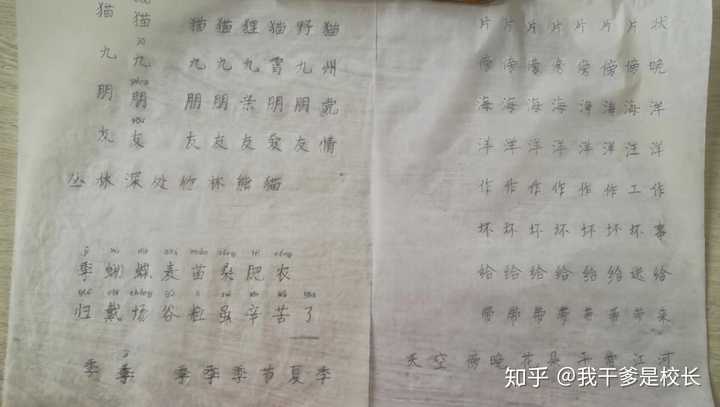 猫 猫 猫 猫 狸 猫 野 猫
九 九 九 九 九 霄 九 州
朋 朋 朋 朋 亲 朋 朋 党
友 友 友 友 友 爱 友 情
丛 林 深 处 竹 林 熊 猫
季 蝴 蝶 麦 苗 桑 肥 农
归 戴 场 谷 粒 虽 辛 苦 了
季 季 季 季 季 节 夏 季
片 片 片 片 片 片 状
傍 傍 傍 傍 傍 傍 晚
海 海 海 海 海 海 洋
洋 洋 洋 洋 洋 汪 洋
作 作 作 作 作 工 作
坏 坏 坏 坏 坏 坏 事
给 给 给 给 给 送 给
带 带 带 带 带 带 来
天 空 傍 晚 花 朵 江 河
知乎 @我干爹是校长